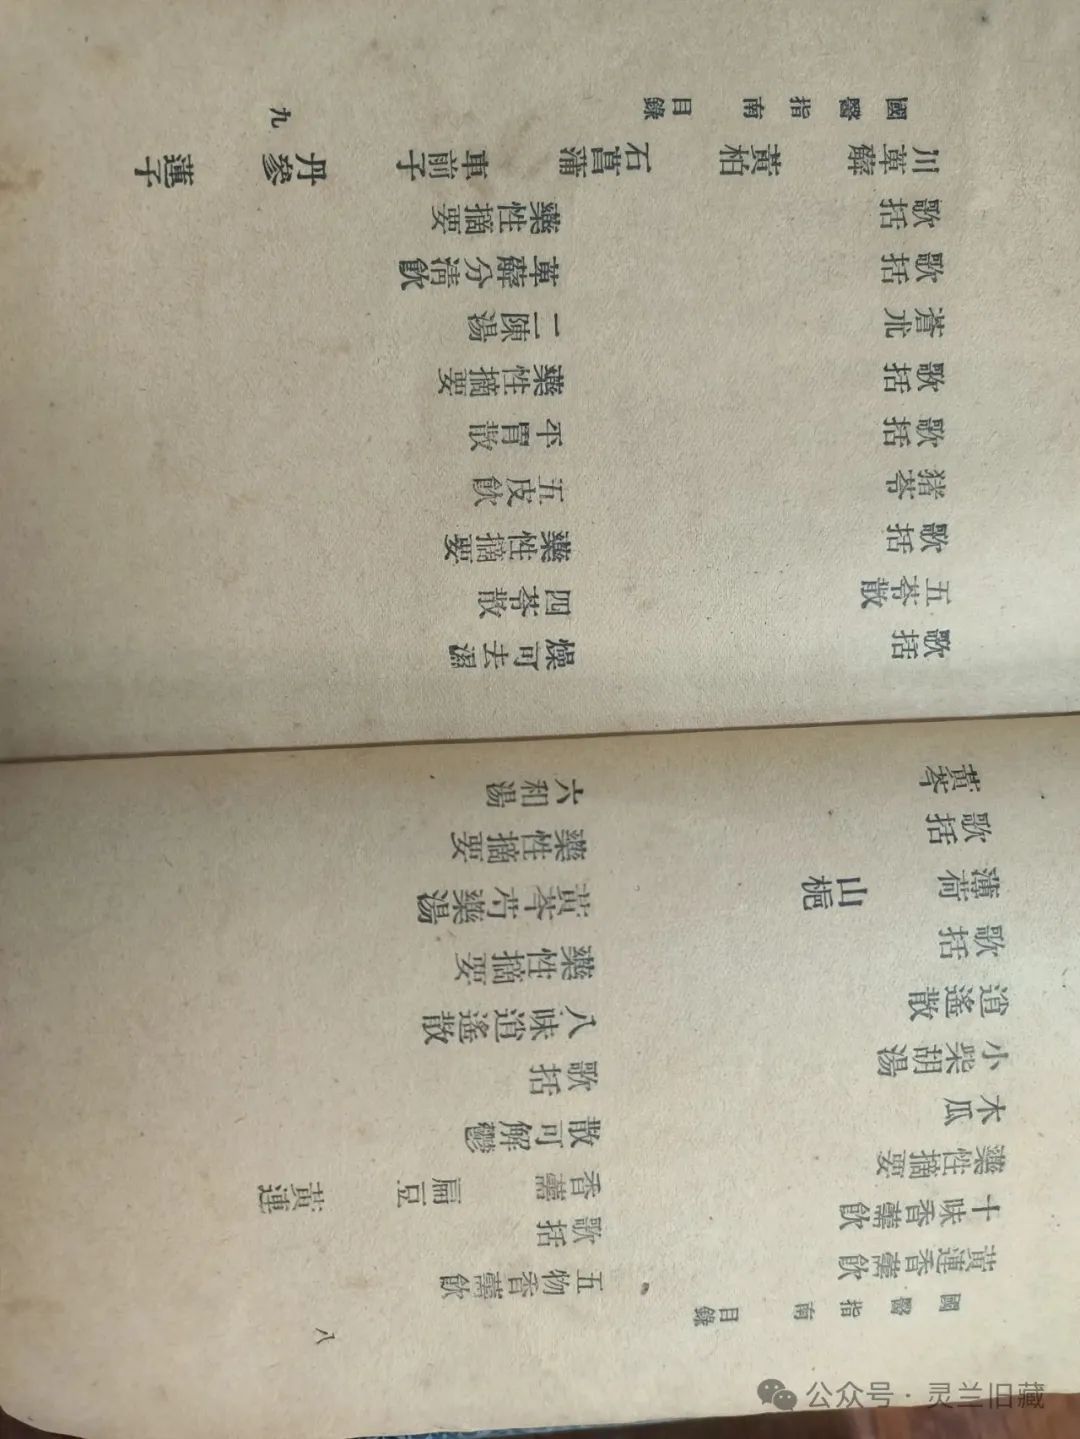 國醫指南 目錄 八
黃連香薷飲 五物香薷飲
十味香薷飲 歌括
藥性摘要 香薷 扁豆 黃連
木瓜 散可解鬱
小柴胡湯 歌括
逍遙散 八味逍遙散
歌括 藥性摘要
薄荷 山梔 黃芩芍藥湯
歌括 藥性摘要
黃芩 六和湯
歌括 燥可去濕
五苓散 四苓散
歌括 藥性摘要
猪苓 五皮飲
歌括 平胃散
歌括 藥性摘要
蒼朮 二陳湯
歌括 萆薢分清飲
歌括 藥性摘要
川萆薢 黃柏 石菖蒲 車前子 丹參 蓮子
國醫指南 目錄 九
公众号·灵兰旧藏